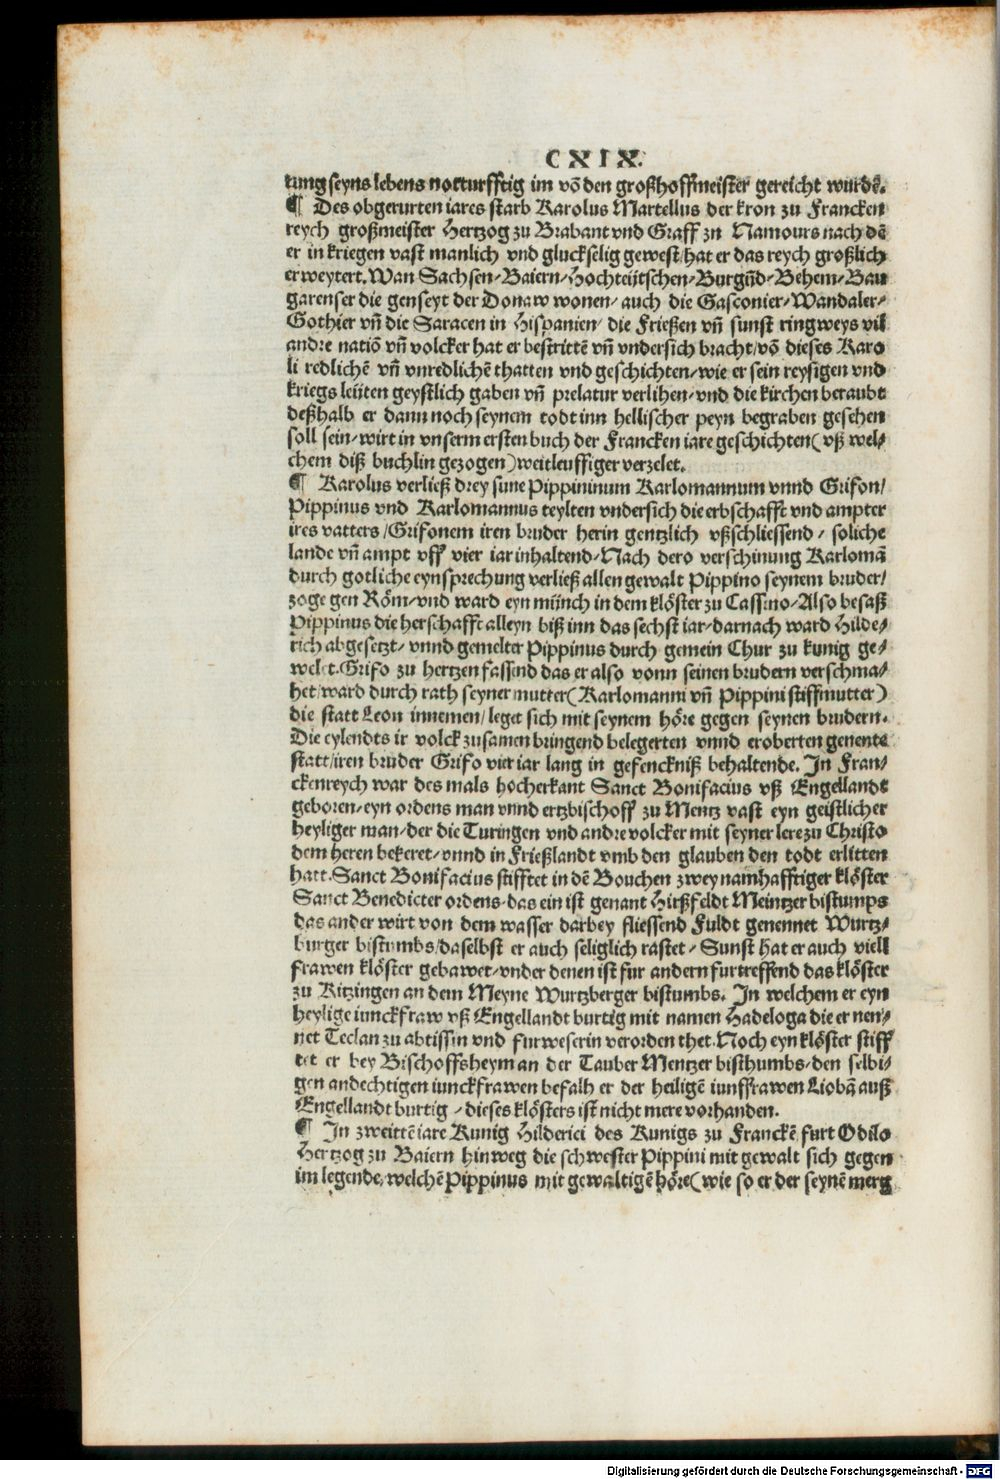 CXIX.
tung seyns lebens notturfftig im võ den großhoffmeister gereicht wurdẽ.
¶ Des obgerurten iares starb Karolus Martellus der kron zu Francken
reych großmeister Hertzog zu Brabant vnd Graff zu Namours nach dẽ
er in kriegen vast manlich vnd gluckselig gewest/hat er das reych größlich
erweytert. Wan Sachsen/Baiern/Hochteütschen/Burgũd/Behem/Bau
garenser die genseyt der Donaw wonen/auch die Gasconier/Wandaler/
Gothier vñ die Saracen in Hispanien/die Frießen vñ sunst ringweys vil
andre natiõ vñ volcker hat er bestrittẽ vñ vndersich bracht/võ dieses Karo
li redlichẽ vñ vnredlichẽ thatten vnd geschichten/wie er sein reysigen vnd
kriegs leüten geystlich gaben vñ prelatur verlihen/vnd die kirchen beraubt
deßhalb er dann noch seynem todt inn hellischer peyn begraben gesehen
soll sein/wirt in vnserm ersten buch der Francken iare geschichten(vß wel/
chem diß buchlin gezogen)weitleuffiger verzelet.
¶ Karolus verließ drey sune Pippininum Karlomannum vnnd Grifon/
Pippinus vnd Karlomannus teylten vndersich die erbschafft vnd ampter
ires vatters/Grifonem iren bruder herin gentzlich vßschliessend/soliche
lande vñ ampt vff vier iar inhaltend/Nach dero verschinung Karlomã
durch gotliche eynsprechung verließ allen gewalt Pippino seynem bruder/
zoge gen Röm/vnd ward eyn münch in dem klöster zu Cassino/Also besaß
Pippinus die herschafft alleyn biß inn das sechst iar/darnach ward Hilde/
rich abgesetzt/vnnd gemelter Pippinus durch gemein Chur zu kunig ge/
welet.Grifo zu hertzen fassend das er also vonn seinen brudern verschma/
het/ward durch rath seyner mutter(Karlomanni vñ Pippini stiffmutter)
die statt Leon innemen/leget sich mit seynem höre gegen seynen brudern.
Die eylendts ir volck zusamen bringend belegerten vnnd eroberten genente
statt/iren bruder Grifo vier iar lang in gefenckniß behaltende. In Fran/
ckenreych war des mals hocherkant Sanct Bonifacius vß Engellandt
geboren/eyn ordens man vnnd ertzbischoff zu Mentz vast eyn geistlicher
heyliger man/der die Turingen vnd andre volcker mit seyner lere zu Christo
dem heren bekeret/vnnd in Frießlandt vmb den glauben den todt erlitten
hatt.Sanct Bonifacius stifftet in dẽ Bouchen zwey namhafftiger klöster
Sanct Benedicter ordens/das ein ist genant Hirßfeldt Meintzer bistumps
das ander wirt von dem wasser darbey fliessend Fuldt genennet Wurtz/
burger bistumbs/daselbst er auch seliglich rastet/Sunst hat er auch viell
frawen klöster gebawet/vnder denen ist fur andern furtreffend das klöster
zu Kitzingen an dem Meyne Wurtzberger bistumbs. In welchem er eyn
heylige iunckfraw vß Engellandt burtig mit namen Hadeloga die er nen/
net Teclan zu abtissin vnd furweserin verorden thet.Noch eyn klöster stiff
tet er bey Bischoffsheym an der Tauber Mentzer bisthumbs/den selbi/
gen andechtigen iunckfrawen befalh er der heiligẽ iunffrawen Liobã auß
Engellandt burtig/dieses klösters ist nicht mere vorhanden.
¶ In zweittẽ iare Kunig Hilderici des Kunigs zu Franckẽ furt Odilo
Hertzog zu Baiern hinweg die schwester Pippini mit gewalt sich gegen
im legende/welchẽ Pippinus mit gewaltigẽ höre(wie so er der seynẽ merg
Digitalisierung gefördert durch die Deutsche Forschungsgemeinschaft - DFG